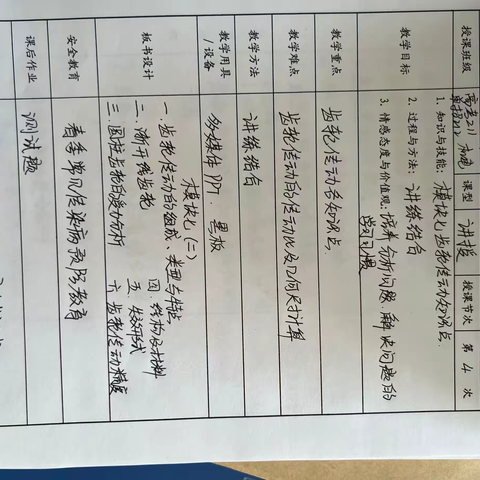 授课班级 高考211 单招212 机电 课型 讲授 授课节次 第 4 次
教学目标
1. 知识与技能: 模块七 齿轮传动知识点.
2. 过程与方法: 讲练结合
3. 情感态度与价值观: 培养分析问题、解决问题的
学习习惯
教学重点 齿轮传动各知识点.
教学难点 齿轮传动的传动比及几何尺寸计算
教学方法 讲练结合
教学用具/设备 多媒体PPT. 黑板
板书设计
模块七(二)
一. 齿轮传动的组成、类型与特点
二、渐开线齿轮
三. 圆柱齿轮的受力分析
四. 结构及材料
五. 失效形式
六 齿轮传动精度
安全教育 春季常见传染病预防教育
课后作业 测试题